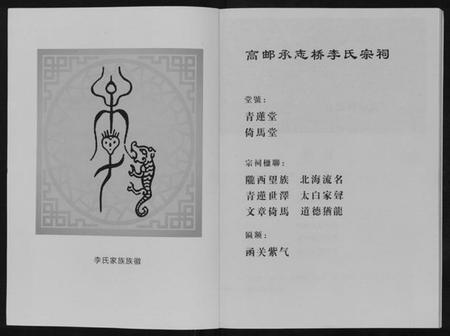 李氏家族族徽
高邮承志桥李氏宗祠
堂號：
青蓮堂
倚馬堂
宗祠楹聯：
隴西望族 北海流名
青蓮世澤 太白家聲
文章倚馬 道德猶龍
匾额：
函关紫气